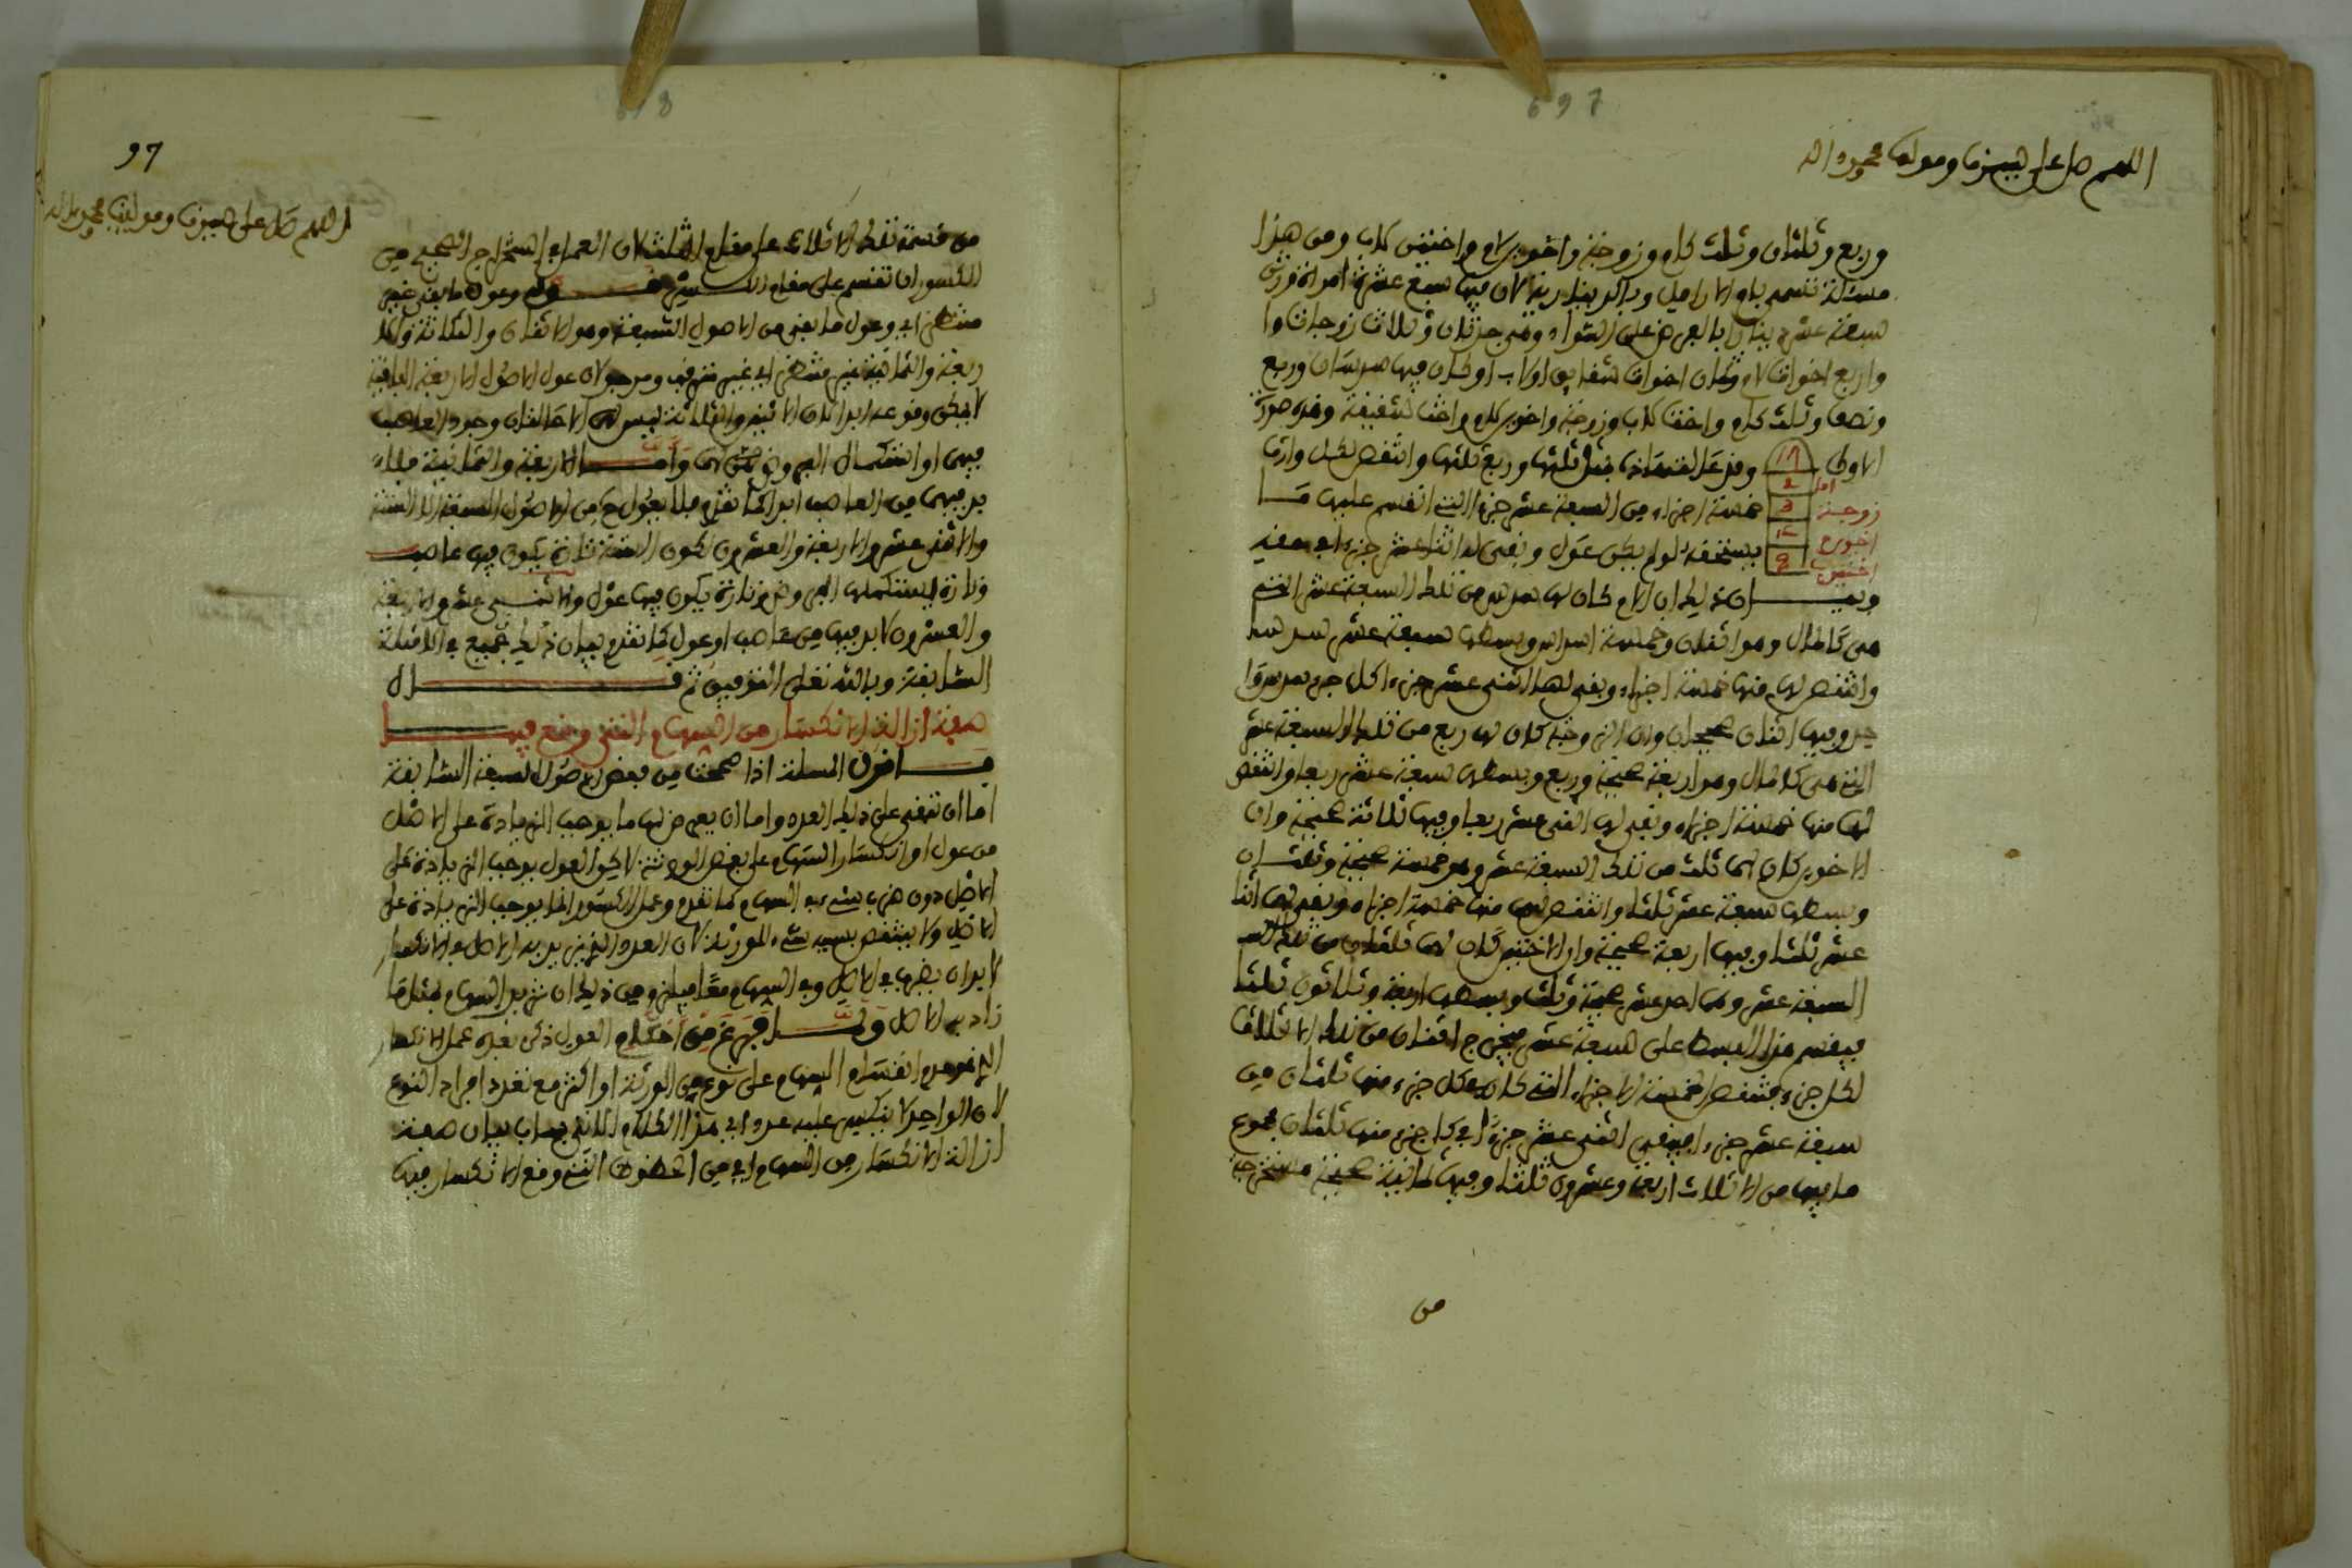 697
اللهم صل على سيدنا ومولانا محمد وآله
وربع وثلثان وثلث كام وزوجة واخوين لام واختين لاب ومن هذا
مسئلة تسمى بام الارامل وبالدينارية لان فيها سبع عشرة امراة ورثن
سبعة عشر دينارا بالفرض على السواء وهي جدتان وثلاث زوجات وا
واربع اخوات لام وثمان اخوات شقايق او لاب او كان فيها سدسان وربع
ونصف وثلث كام واخت لاب وزوجة واخوين لام واخت شقيقة وهذه صورة
الاولى 17 وفد
ام 2
زوجة 3 خمسة اجزاء من السبعة عشر جزءا التي انقسم عليها
اخوين 4 يستحقه لو لم يكن عول وبقي له اثنا عشر جزءا
اختين 8
وبيان ذلك ان الام كان لها سدس من تلك السبعة عشر التي
هي كالمال وهو اثنان وخمسة اسداس وبسطها سبعة عشر سدسا
وانتقص لها منها خمسة اجزاء وبقي لها اثنى عشر جزءا كل جزء سدس
وفيها اثنان صحيحان وان الزوجة كان لها ربع من تلك السبعة عشر
التي هي كالمال وهو اربعة صحيحة وربع وبسطها سبعة عشر ربعا وانتقص
لها منها خمسة اجزاء وبقي لها اثنى عشر ربعا وفيها ثلاثة صحيحة وان
الاخوين كان لهما ثلث من تلك السبعة عشر وهو خمسة صحيحة وثلثان
وبسطها سبعة عشر ثلثا وانتقص لهما منها خمسة اجزاء وبقي لهما اثنا
عشر ثلثا وفيها اربعة صحيحة وان الاختين كان لهما ثلثان من تلك
السبعة عشر وهما احد عشر صحيحة وثلث وبسطها اربعة وثلاثون ثلثا
فيقسم هذا البسط على سبعة عشر يخرج اثنان من تلك الاثلاث
لكل جزء فتنقص الخمسة الاجزاء التي كان لكل جزء منها ثلثان من
سبعة عشر جزءا فيبقى اثنى عشر جزءا لكل جزء منها ثلثان مجموع
ما فيها من الاثلاث اربعة وعشرون ثلثا وفيها ثمانية صحيحة مستخرجة
من
698
97
اللهم صل على سيدنا ومولانا محمد وآله
من قسمة تلك الاثلاث على مقام الثلث لان العمل في استخراج الصحيح من
الكسور ان تقسم على مقام الكسر وعول ما بقي غير
منتقض اي وعول ما بقي من الاصول السبعة وهو الاثنان والثلاثة والا
ربعة والثمانية غير منتقض اي غير
لا يمكن وقوعه ابدا لان الاثنين والثلاثة ليس لهما الا حالتان وجود العاصب
فيهما او استكمال الفروض لهما واما الاربعة والثمانية فلا
بد فيهما من العاصب ابدا كما تقدم فلا يعول من الاصول السبعة الا الستة
والاثنى عشر والاربعة والعشرون لكون الستة تارة يكون فيها عاصب
وتارة يستكملها الفروض وتارة يكون فيها عول والاثنى عشر والاربعة
والعشرون لا بد فيها من عاصب او عول كما تقدم بيان ذلك جميع في الامثلة
السابقة وبالله تعلى التوفيق ثم قال
صفة ازالة الانكسار من السهام التي وقع فيها
فاقول المسئلة اذا صححت من بعض الاصول السبعة السابقة
اما ان تبقى على ذلك العدد واما ان يعرض لها ما يوجب الزيادة على الاصل
من عول او انكسار السهام على بعض الورثة لاكن العول يوجب الزيادة على
الاصل دون ضرب شيء في السهام كما تقدم وعمل الانكسار انما يوجب الزيادة على
الاصل ولا ينتقص بسببه شيء للورثة لان العدد الذي يزيد الاصل في الانكسار
لا بد ان يضرب في الاصل وفي السهام معا فيلزم من ذلك ان تزيد السهام بمثل ما
زاد به الاصل ولما فرغ من احكام العول ذكر بعده عمل الانكسار
الذي هو عدم انقسام السهام على نوع من الورثة او اكثر مع تعدد افراد النوع
لان الواحد لا ينكسر عليه عدد اي هذا الكلام الاتي في باب بيان صفة
ازالة الانكسار من السهام اي من الحظوظ التي وقع الانكسار فيها